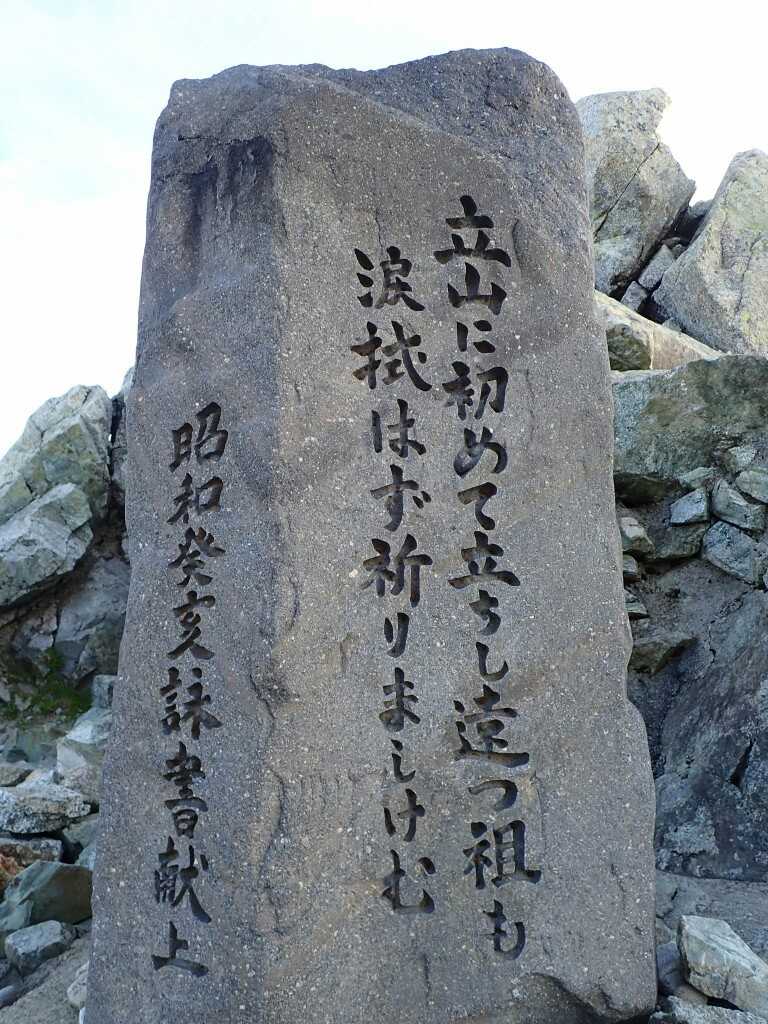 立山に初めて立ちし遠つ祖も
涙拭はず祈りましけむ
昭和癸亥詠書献上